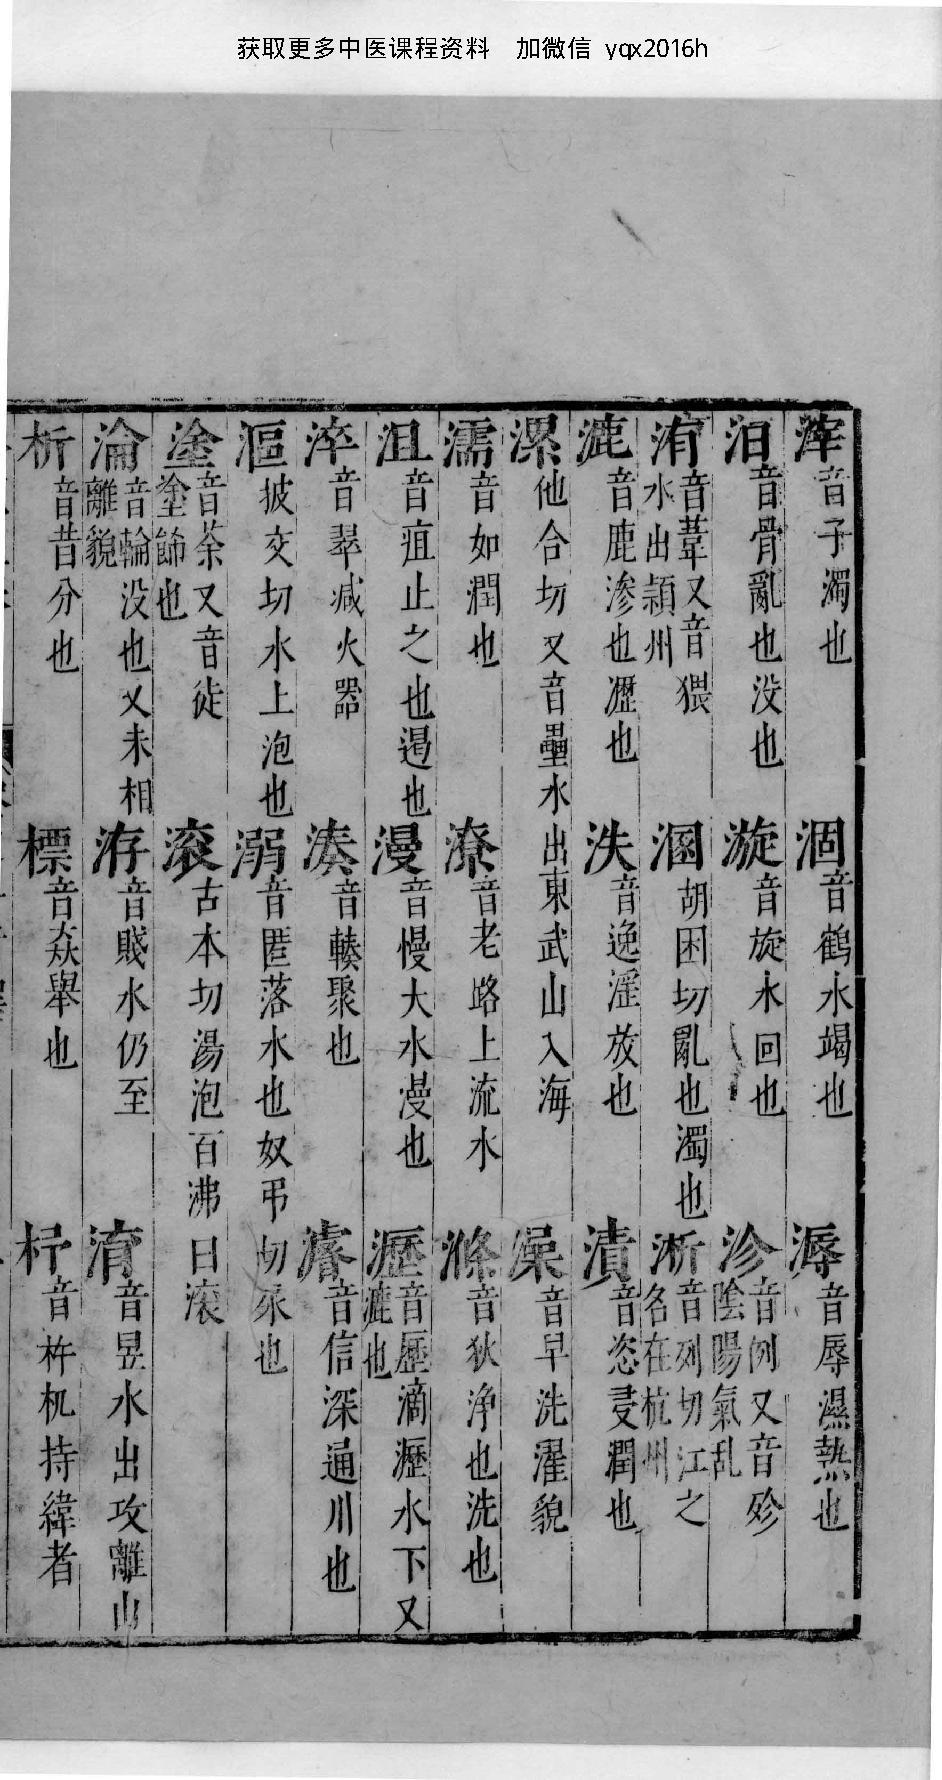 获取更多中医课程资料 加微信 yqx2016h
滓音子濁也 涸音鶴水竭也 溽音辱濕熱也
汩音骨亂也没也 漩音旋水回也 沴音例又音殄陰陽氣乱
洧音葦又音猥水出潁州 溷胡困切亂也濁也 淅音列切江之名在杭州
漉音鹿滲也瀝也 泆音逸淫放也 漬音恣浸潤也
漯他合切又音壘水出東武山入海 澡音早洗濯貌
濡音如潤也 潦音老路上流水 滌音狄浄也洗也
沮音疽止之也遏也 漫音慢大水漫也 瀝音歷滴瀝水下又漉也
淬音翠滅火器 湊音輳聚也 濬音信深通川也
漚披交切水上泡也 溺音匿落水也奴弔切尿也
塗音茶又音徒塗飾也 滚古本切湯泡百沸曰滚
淪音輪没也又未相離貌 洊音賤水仍至 淯音昱水出攻離山
析音昔分也 標音猋舉也 杼音杵机持緯者